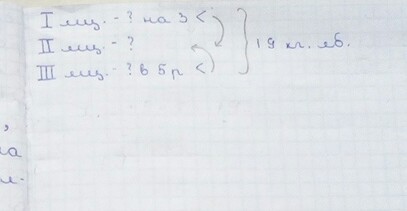 I ящ. - ? на 3 <
II ящ. - ?
III ящ. - ? в 5 р <
19 кг. яб.
,